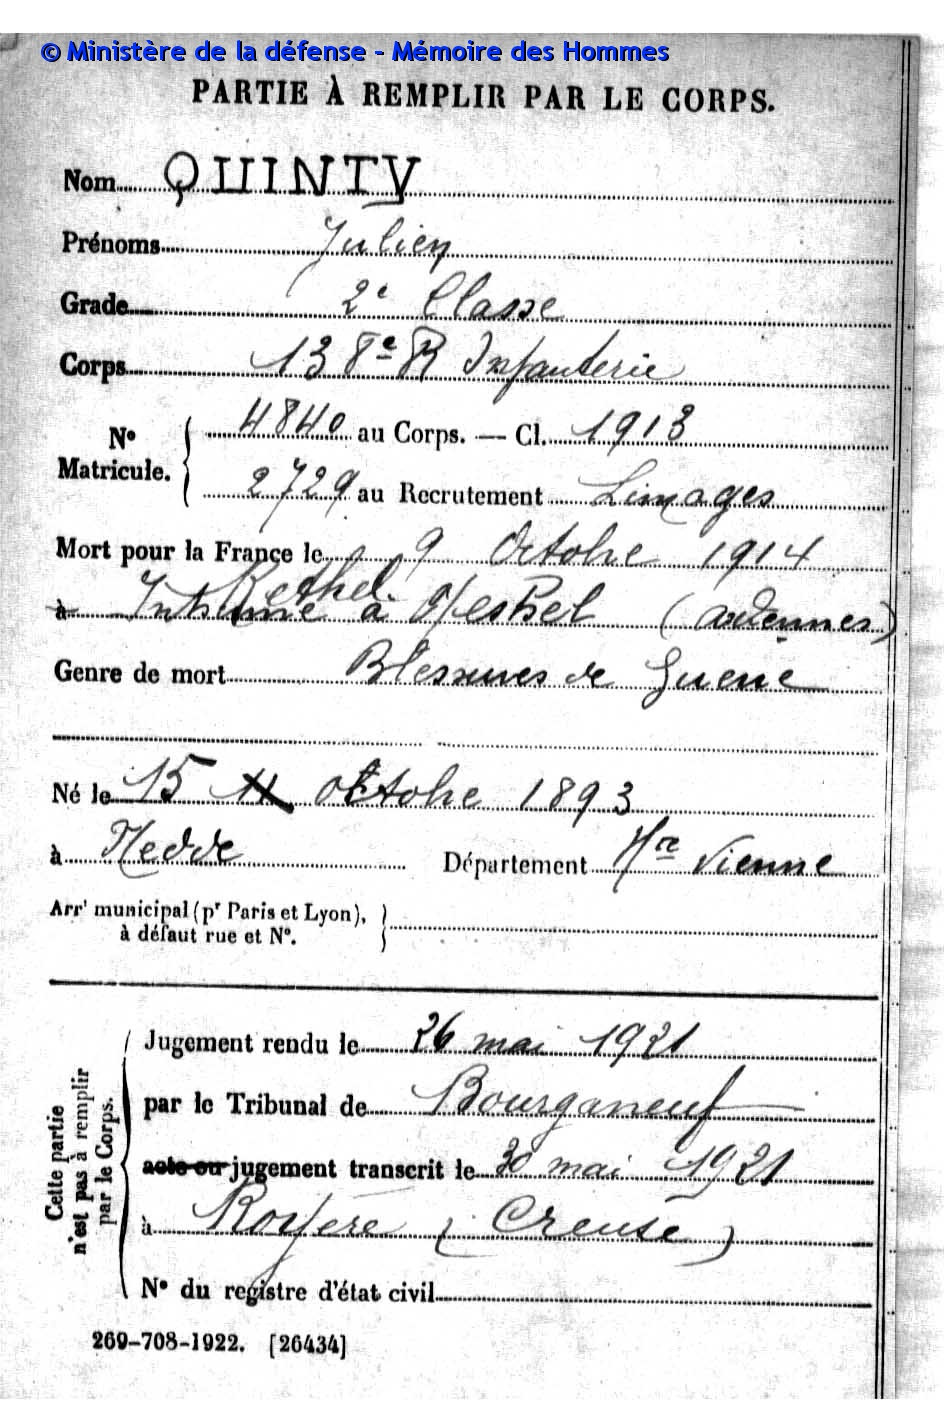 © Ministère de la défense - Mémoire des Hommes
PARTIE À REMPLIR PAR LE CORPS.
Nom QUINTY
Prénoms Julien
Grade 2e Classe
Corps 138e R Infanterie
No Matricule. { 4840 au Corps. — Cl. 1913
2729 au Recrutement Limoges
Mort pour la France le 9 Octobre 1914
Rethel.
à Inhumé à (Ardennes)
Genre de mort Blessures de Guerre
Né le 15 11 octobre 1893
à Nedde Département Hte Vienne
Arrt municipal (pr Paris et Lyon), }
à défaut rue et No.
Cette partie n'est pas à remplir par le Corps.
Jugement rendu le 26 mai 1921
par le Tribunal de Bourganeuf
acte ou jugement transcrit le 30 mai 1921
à Royère (Creuse)
No du registre d'état civil
269-708-1922. [26434]